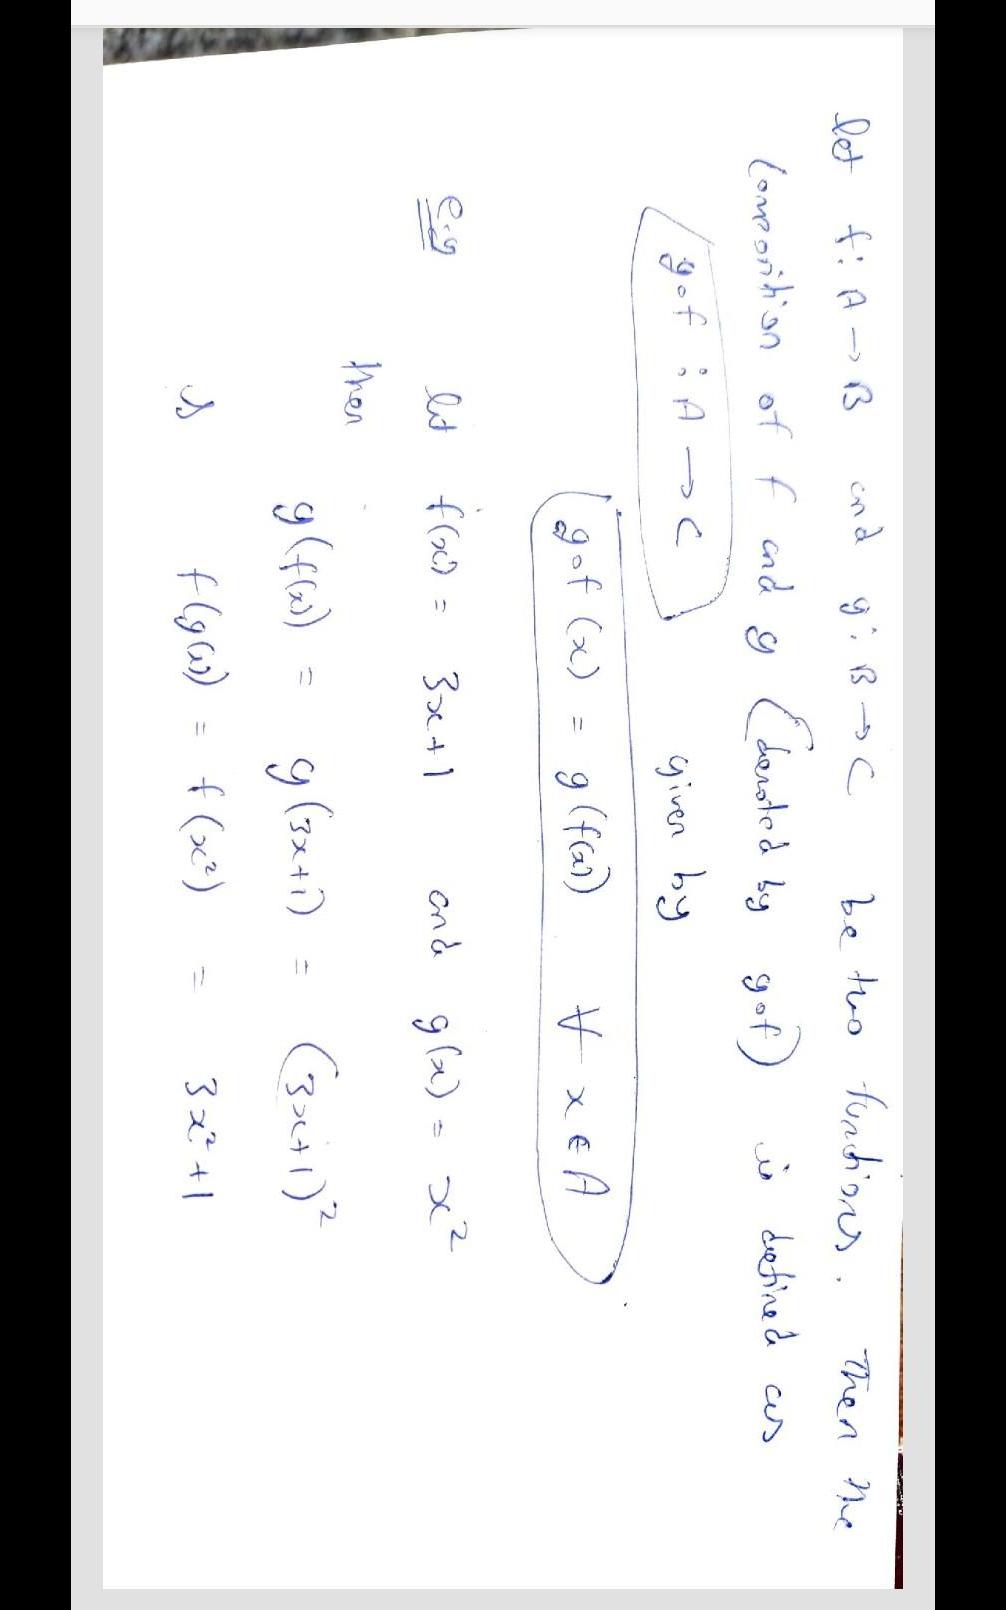 let f: A → B and g: B → C be two functions. Then the
composition of f and g (denoted by gof) is defined as
gof : A → C given by
gof (x) = g(f(x)) ∀ x ∈ A
e.g let f(x) = 3x+1 and g(x) = x²
then
g(f(x)) = g(3x+1) = (3x+1)²
& f(g(x)) = f(x²) = 3x²+1